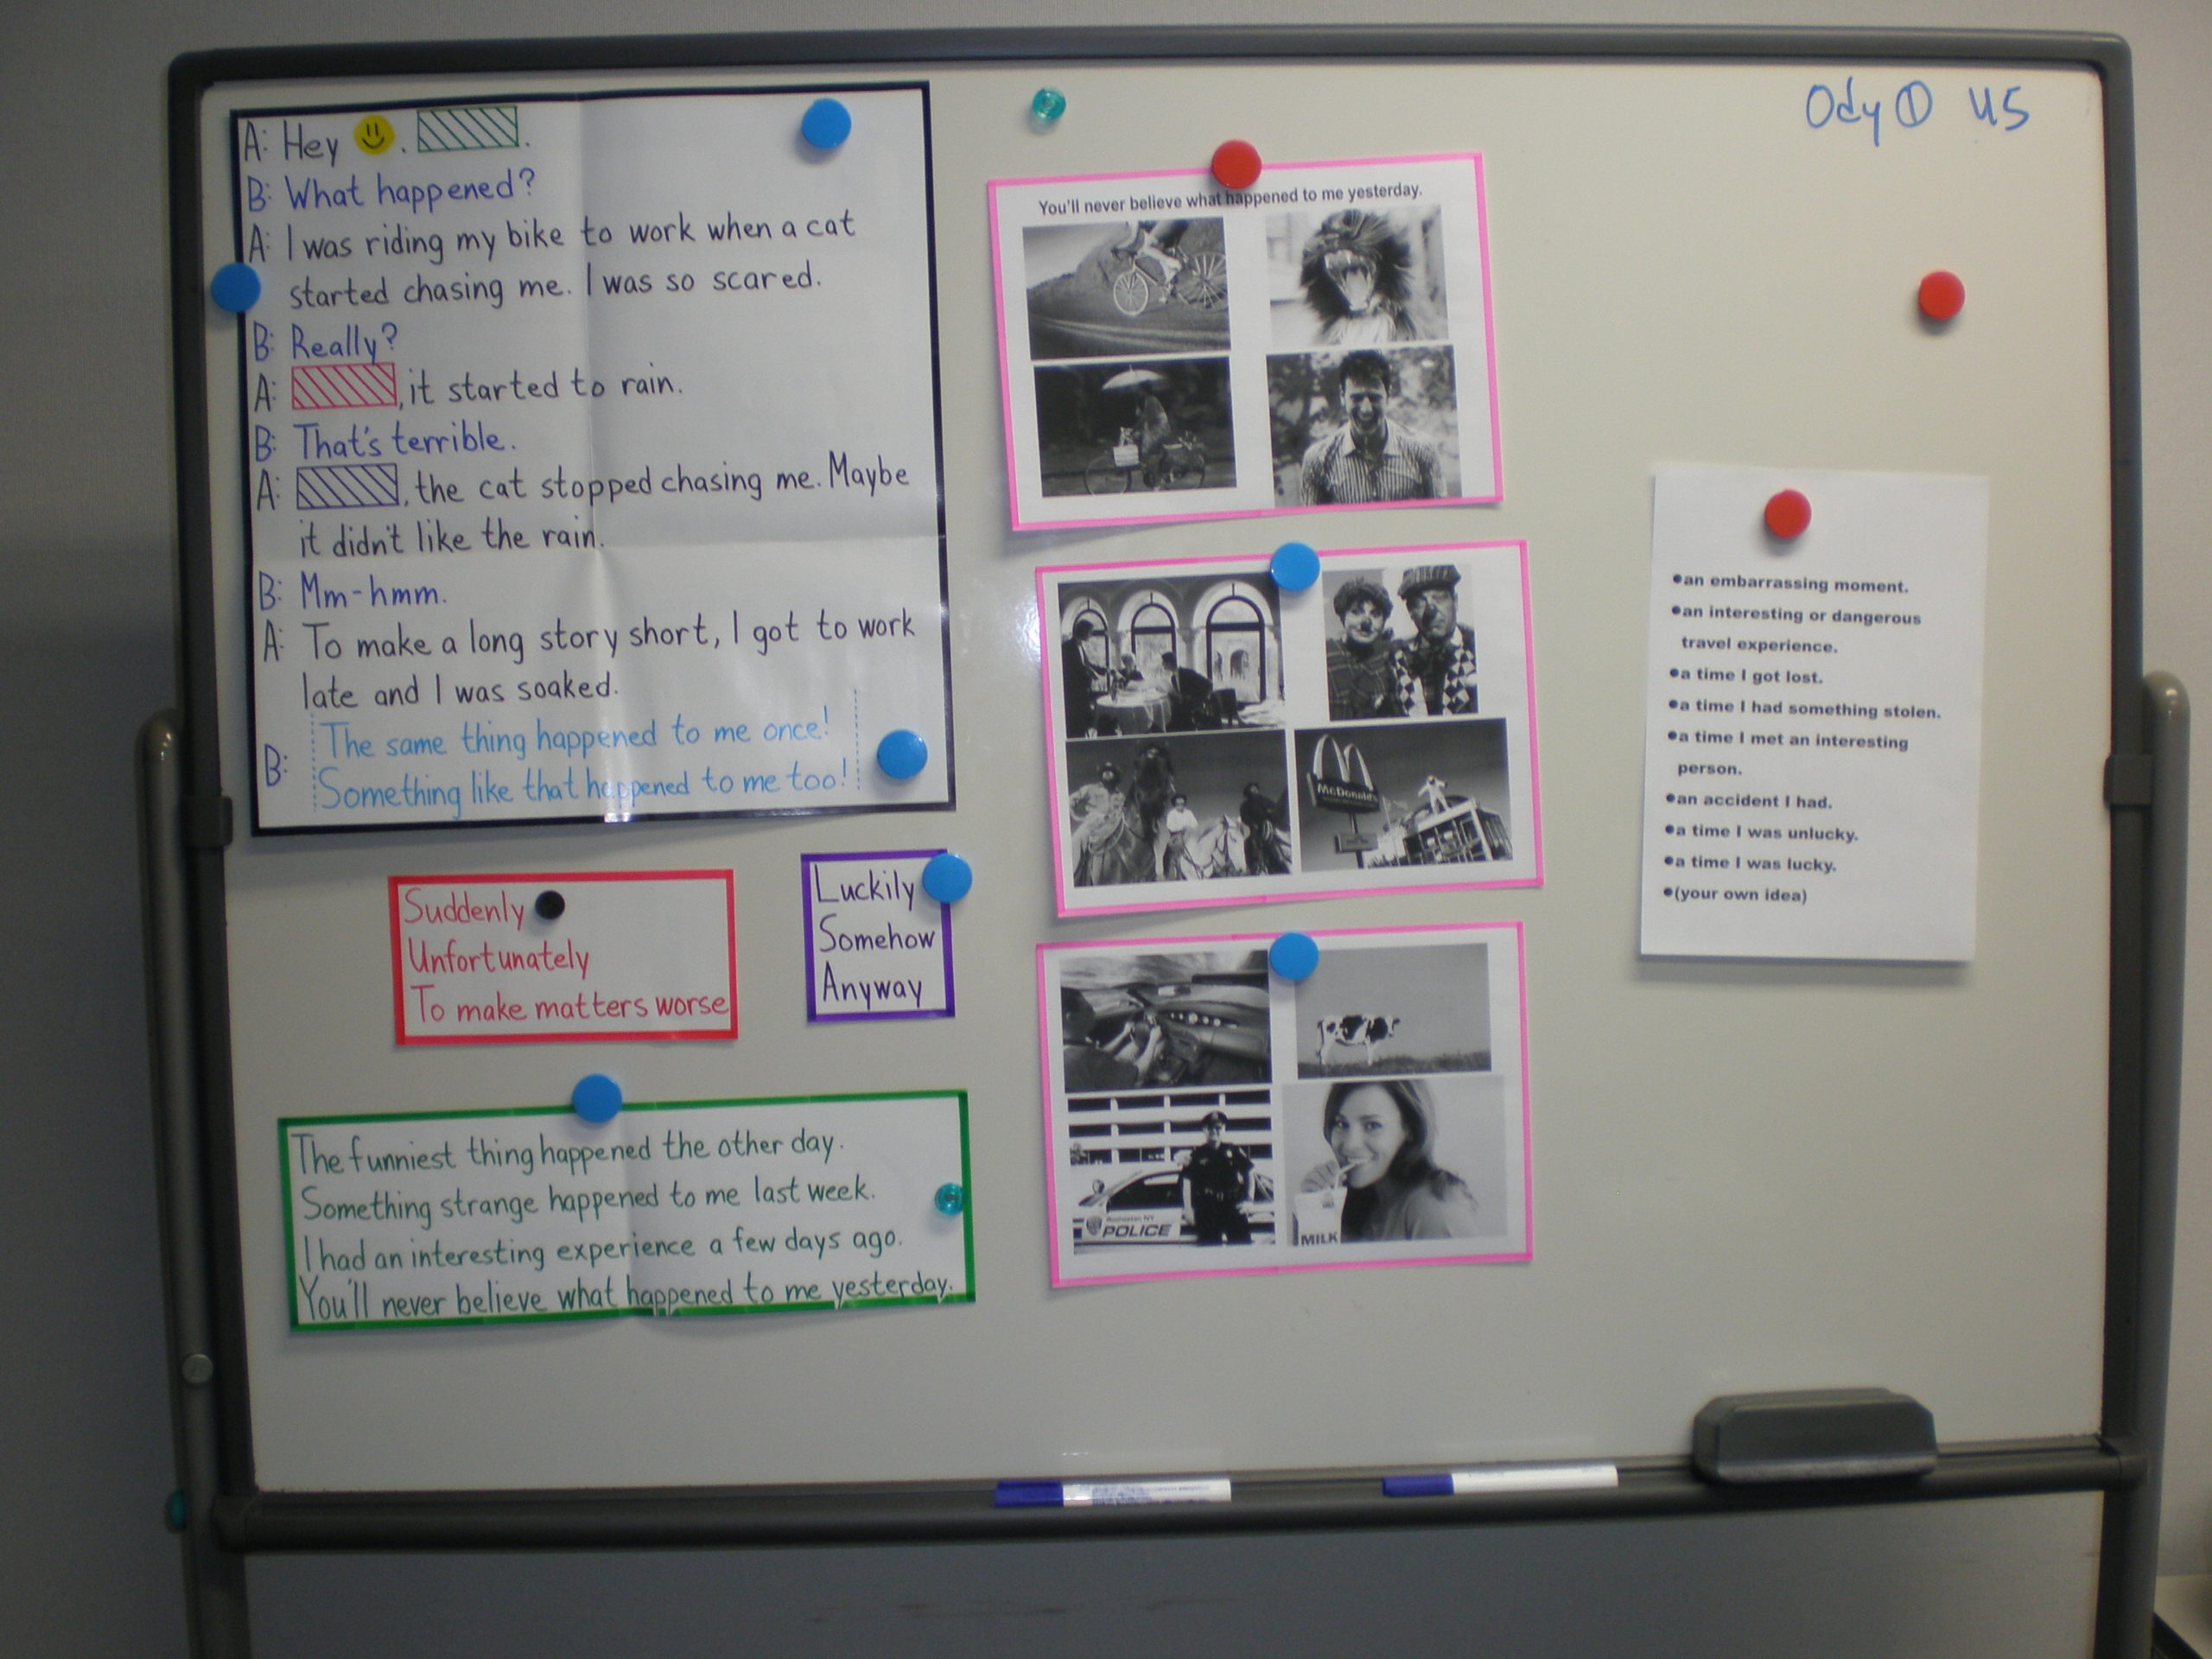 A: Hey . .
B: What happened?
A: I was riding my bike to work when a cat
started chasing me. I was so scared.
B: Really?
A: , it started to rain.
B: That's terrible.
A: , the cat stopped chasing me. Maybe
it didn't like the rain.
B: Mm-hmm.
A: To make a long story short, I got to work
late and I was soaked.
B: The same thing happened to me once!
Something like that happened to me too!
Suddenly
Unfortunately
To make matters worse
Luckily
Somehow
Anyway
The funniest thing happened the other day.
Something strange happened to me last week.
I had an interesting experience a few days ago.
You'll never believe what happened to me yesterday.
You'll never believe what happened to me yesterday.
McDonald's
POLICE
MILK
Ody ① U5
•an embarrassing moment.
•an interesting or dangerous
travel experience.
•a time I got lost.
•a time I had something stolen.
•a time I met an interesting
person.
•an accident I had.
•a time I was unlucky.
•a time I was lucky.
•(your own idea)